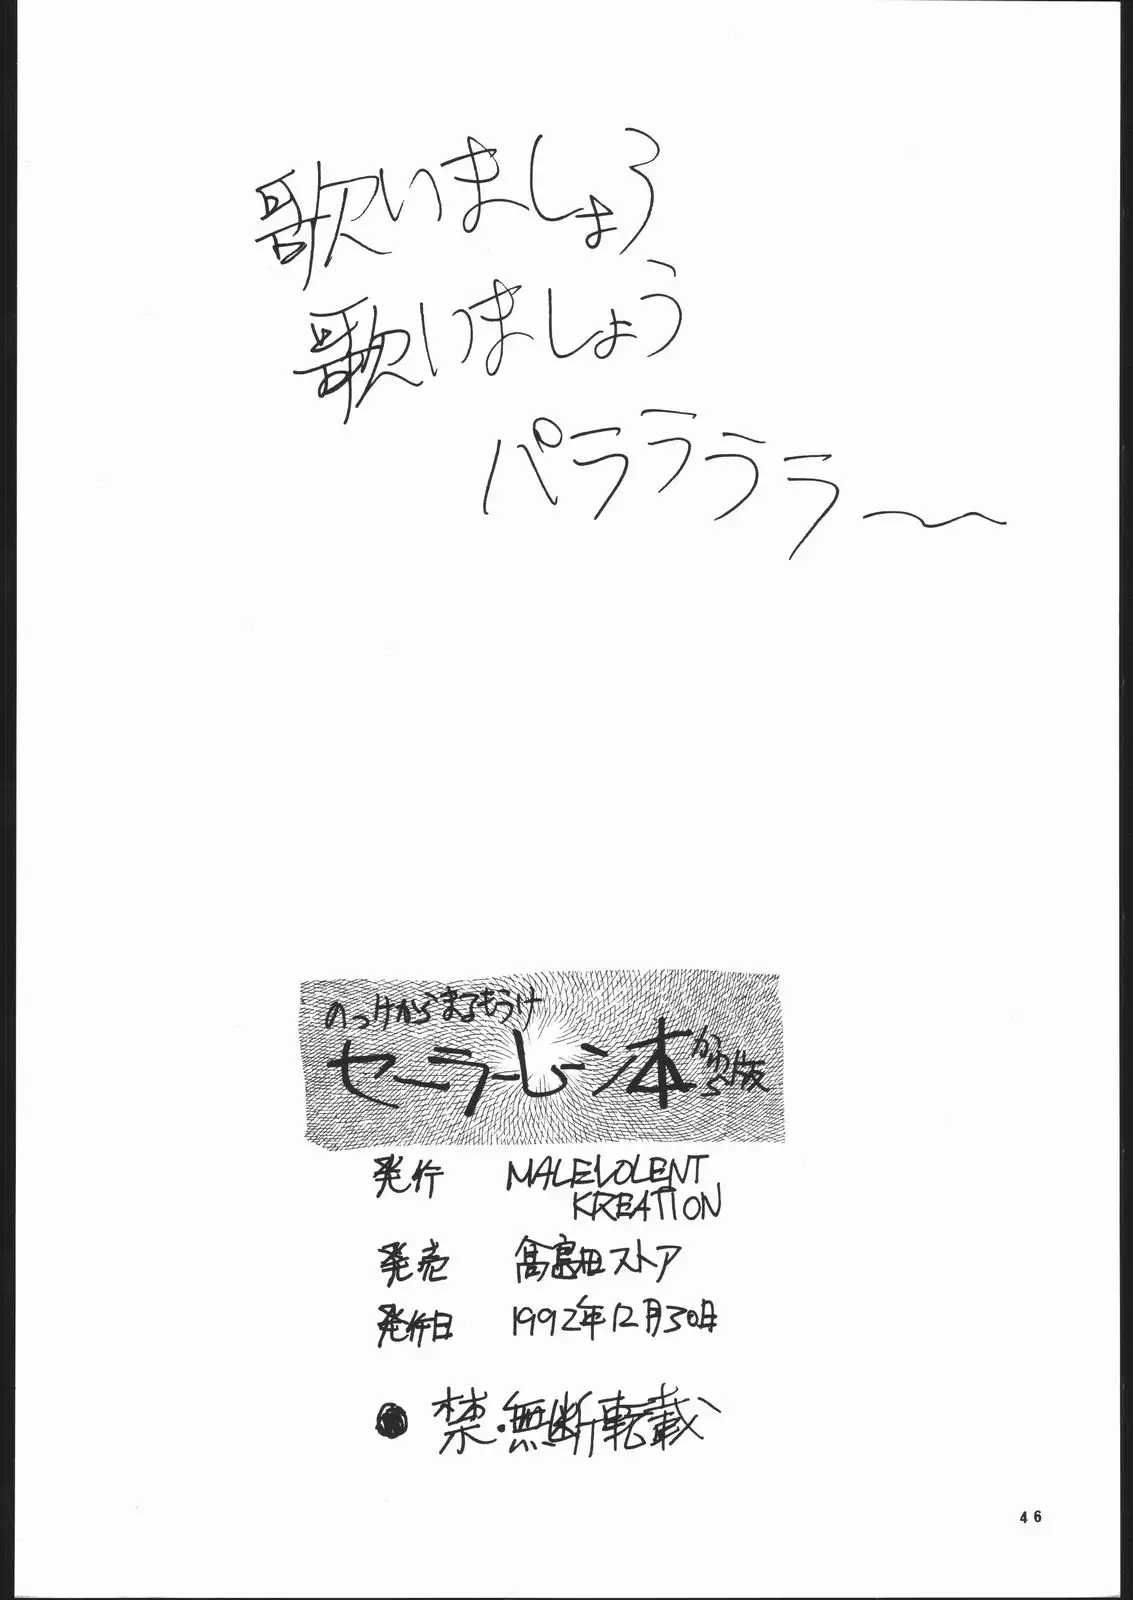 歌いましょう
歌いましょう
パラララララ〜
のっけからまるもうけ
セーラームーン本 かわら版
発行 MALEVOLENT
KREATION
発売 髙島田ストア
発行日 1992年12月30日
● 禁・無断転載
46